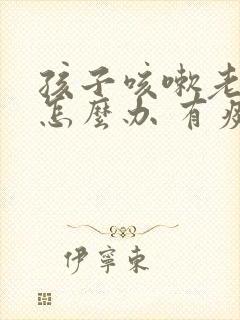 孩子咳嗽老
怎麼办 有痰
伊寧東